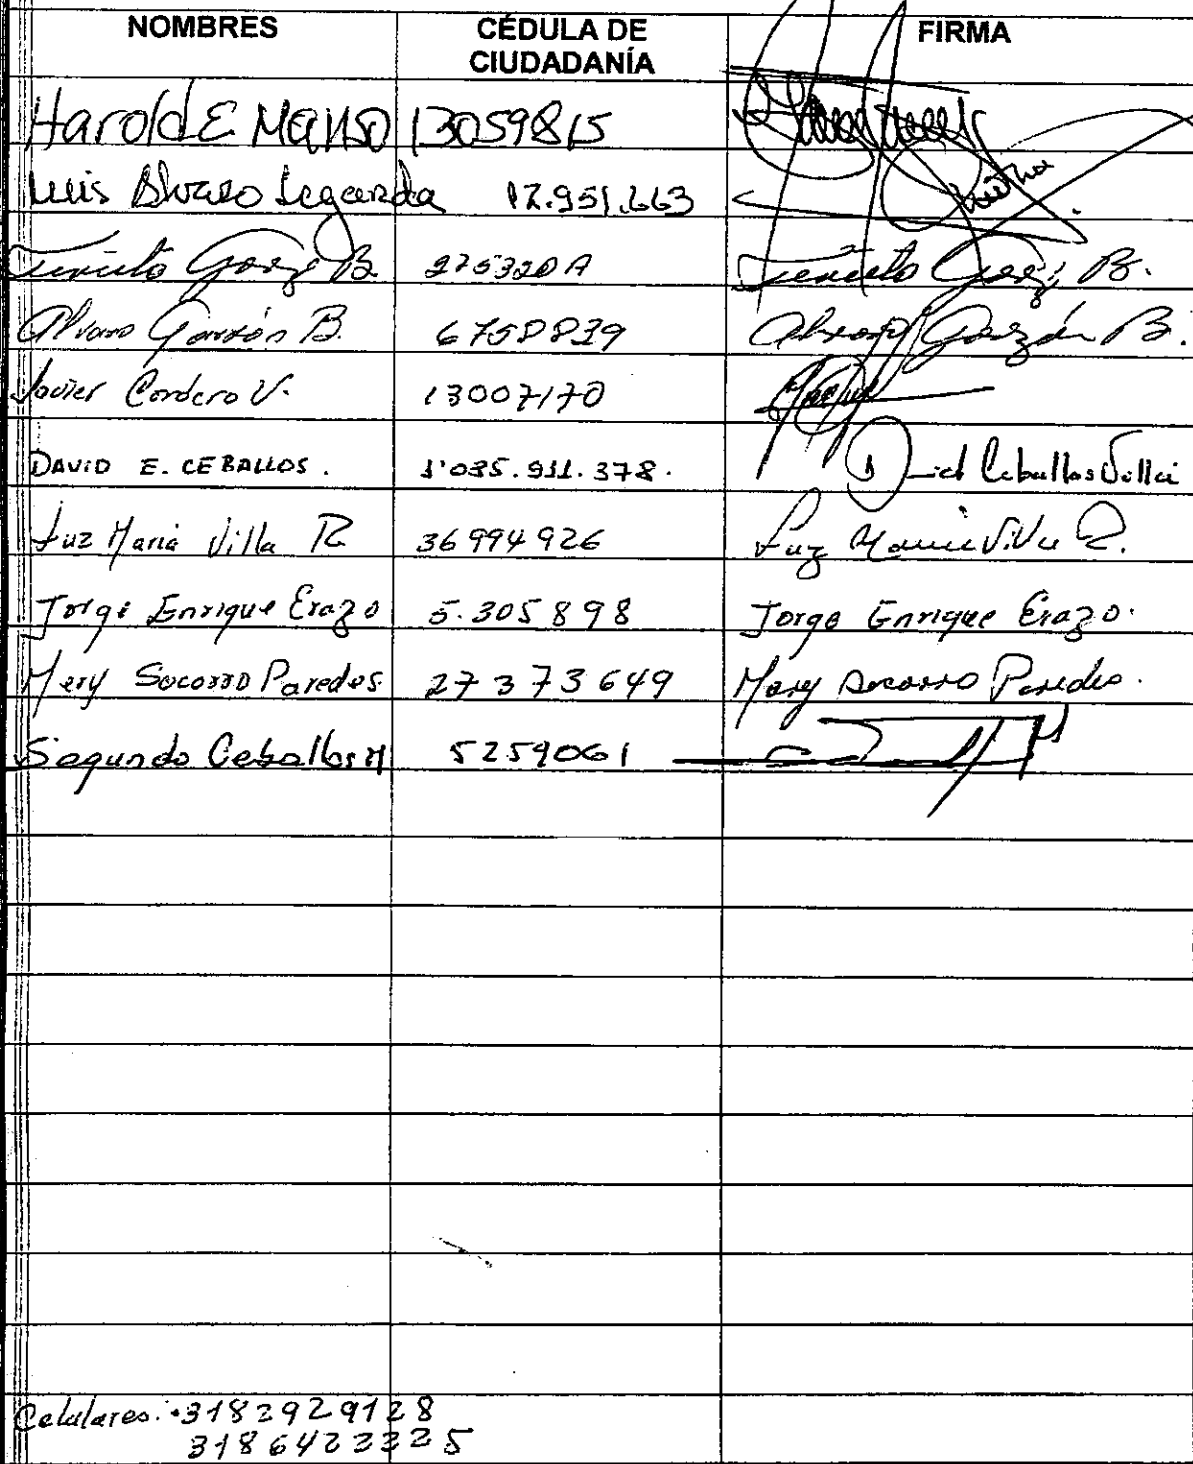 NOMBRES CÉDULA DE CIUDADANÍA FIRMA
Harold E 13059815
Luis Alvaro Legarda 12.951.663
B. B.
Alvaro Garzón B. 6758839 Alvaro Garzón B.
Javier Cordero V. 13007170
DAVID E. CEBALLOS. 1'035.911.378. David Ceballos Villa
Luz Maria Villa R 36994926 Luz Maria Villa R.
Jorge Enrique Erazo 5.305898 Jorge Enrique Erazo.
Mery Socorro Paredes 27373649 Mery Socorro Paredes.
Segundo Ceballos M 5259061
Celulares: 3182929128
3186422225